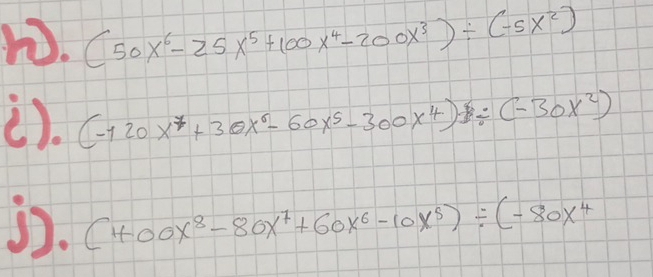 h). (50x⁶ - 25x⁵ + 100x⁴ - 200x³) ÷ (-5x²)
i). (-120x⁷ + 30x⁶ - 60x⁵ - 300x⁴) ÷ (-30x²)
j). (400x⁸ - 80x⁷ + 60x⁶ - 10x⁵) ÷ (-80x⁴